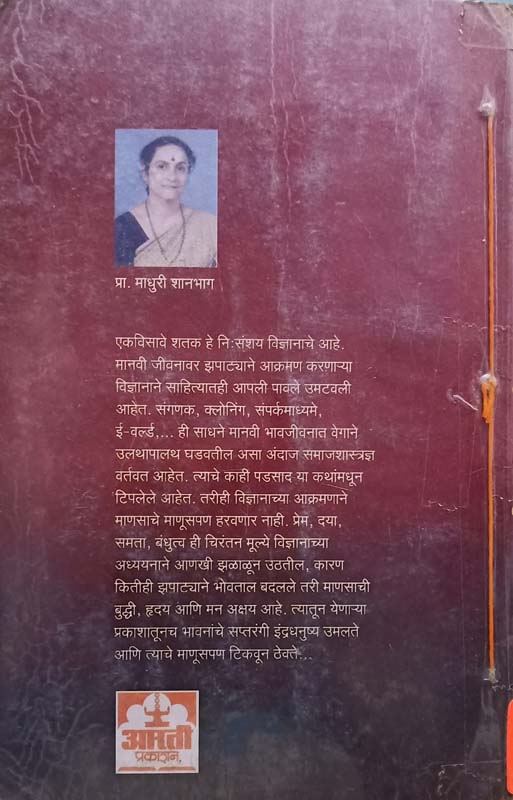 प्रा. माधुरी शानभाग
एकविसावे शतक हे नि:संशय विज्ञानाचे आहे.
मानवी जीवनावर झपाट्याने आक्रमण करणाऱ्या
विज्ञानाने साहित्यातही आपली पावले उमटवली
आहेत. संगणक, क्लोनिंग, संपर्कमाध्यमे,
ई-वर्ल्ड,... ही साधने मानवी भावजीवनात वेगाने
उलथापालथ घडवतील असा अंदाज समाजशास्त्रज्ञ
वर्तवत आहेत. त्याचे काही पडसाद या कथांमधून
टिपलेले आहेत. तरीही विज्ञानाच्या आक्रमणाने
माणसाचे माणूसपण हरवणार नाही. प्रेम, दया,
समता, बंधुत्व ही चिरंतन मूल्ये विज्ञानाच्या
अध्ययनाने आणखी झळाळून उठतील, कारण
कितीही झपाट्याने भोवताल बदलले तरी माणसाची
बुद्धी, हृदय आणि मन अक्षय आहे. त्यातून येणाऱ्या
प्रकाशातूनच भावनांचे सप्तरंगी इंद्रधनुष्य उमलते
आणि त्याचे माणूसपण टिकवून ठेवते...
आरती
प्रकाशन,